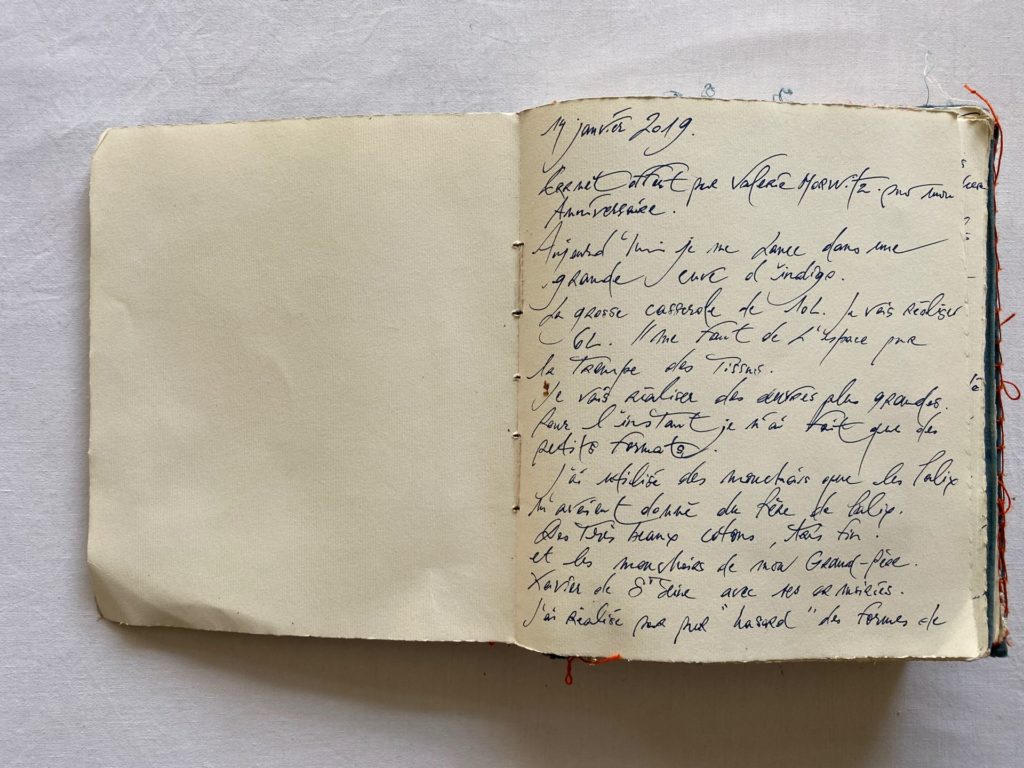 janvier 2019.
Carnet offert par Valérie pour mon
Anniversaire.
Aujourd'hui je me lance dans une
grande cuve d'indigo.
La grosse casserole de 10L. Je vais réaliser
6L. Il me faut de l'espace pour
la trempe des Tissus.
Je vais réaliser des œuvres plus grandes.
Pour l'instant je n'ai fait que des
petits formats.
J'ai utilisé des mouchoirs que les
m'avaient donné du père de
Des Très beaux cotons, très fin.
et les mouchoirs de mon Grand-Père.
Xavier de St Seine avec ses armoiries.
J'ai réalisé par pur "hasard" des formes de